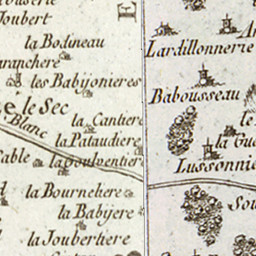 Joubert
la Bodineau
les Babijonieres
le Sec
la Cantiere
Blanc
la Pataudiere
la Poulventiere
la Bournehere
la Babijere
la Joubertiere
Lardillonnerie
Babousseau
le
la Gue
Lussonnie
Sou